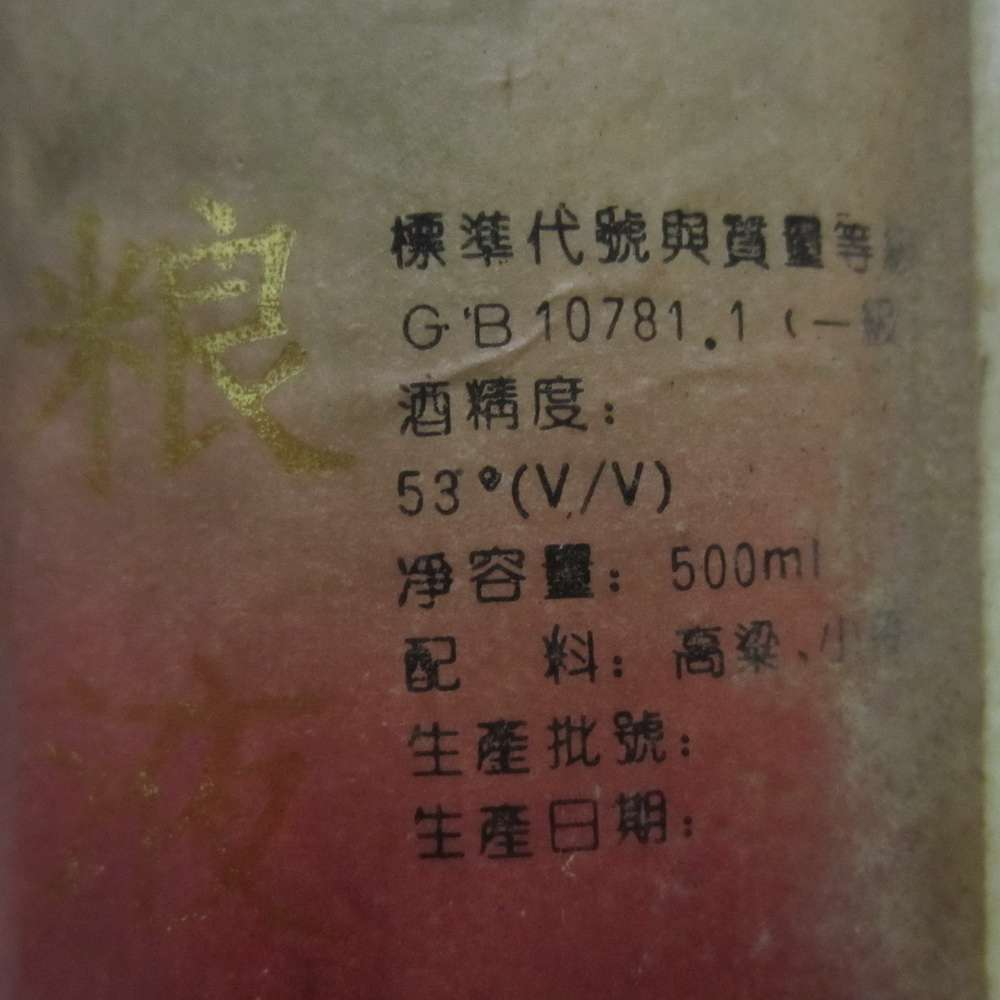 粮
標準代號與質量等級
GB10781.1(一級
酒精度:
53°(V/V)
净容量: 500ml
配 料: 高粱、小
生產批號:
生產日期: